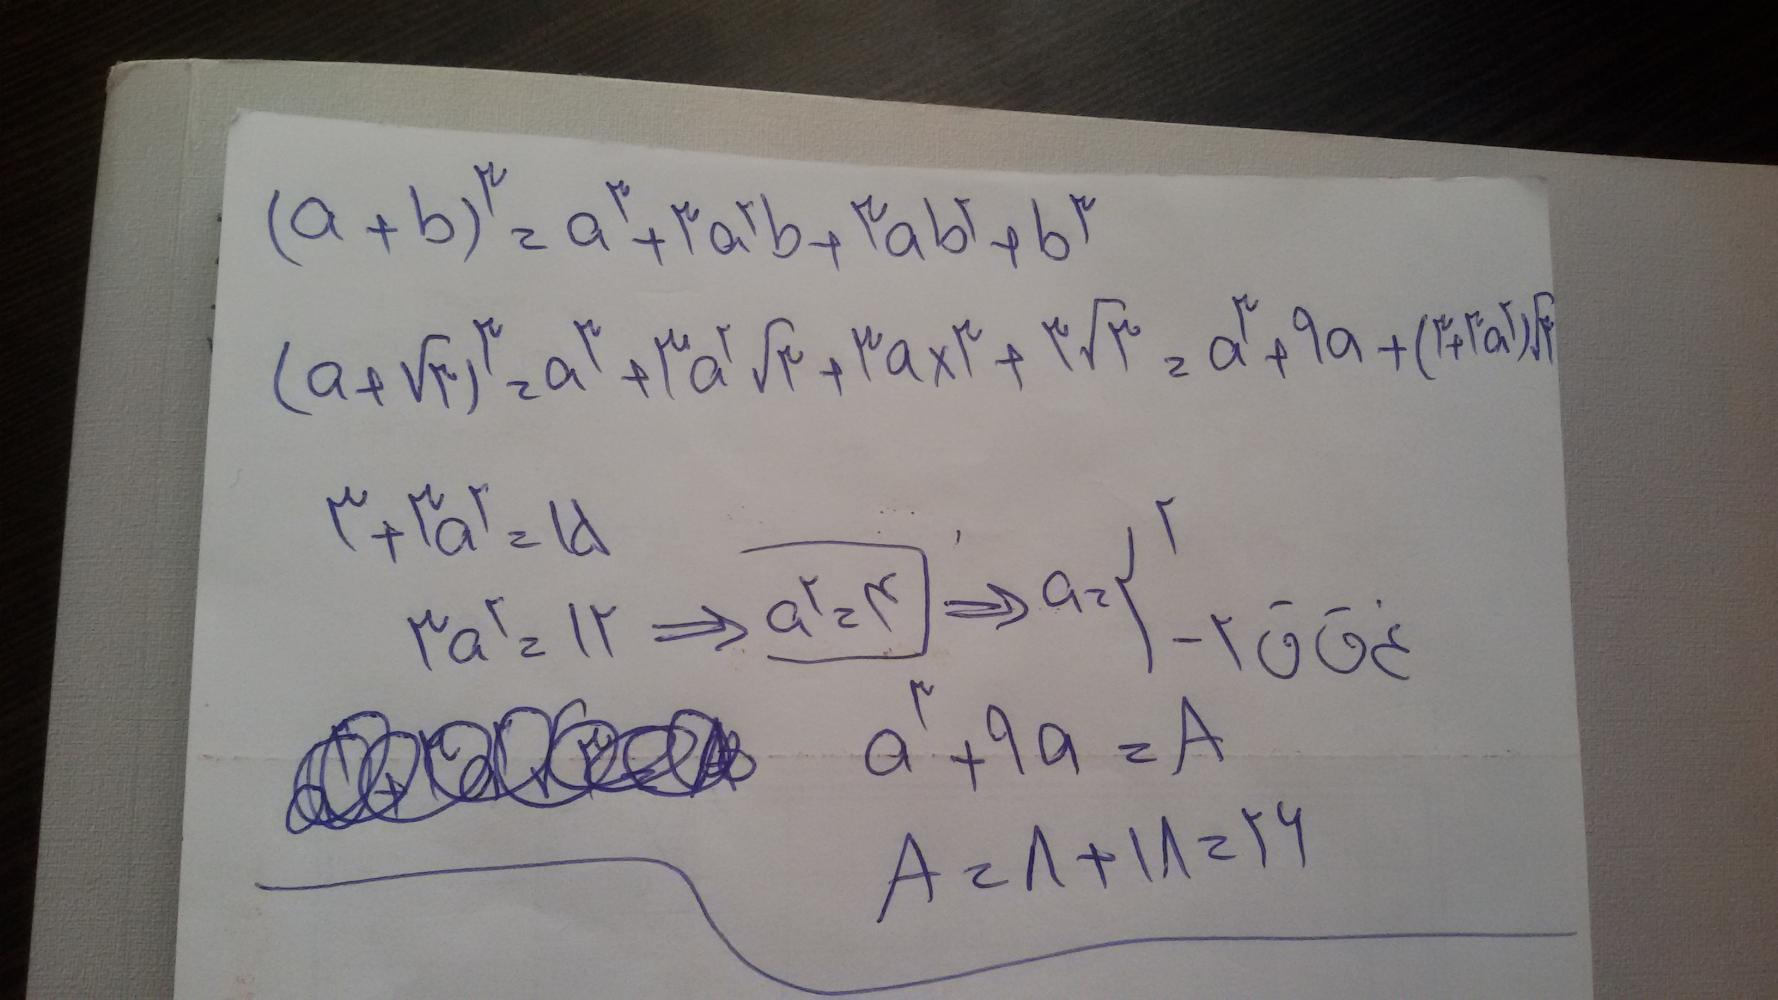 (a + b)^۳ = a^۳ + ۳a^۲b + ۳ab^۲ + b^۳
(a + √۳)^۳ = a^۳ + ۳a^۲√۳ + ۳a×۳ + ۳√۳ = a^۳ + ۹a + (۳+۳a^۲)√۳
۳ + ۳a^۲ = ۱۵
۳a^۲ = ۱۲ ⇒ a^۲ = ۴ ⇒ a = { ۲
-۲ غ ق ق
a^۳ + ۹a = A
A = ۸ + ۱۸ = ۲۶